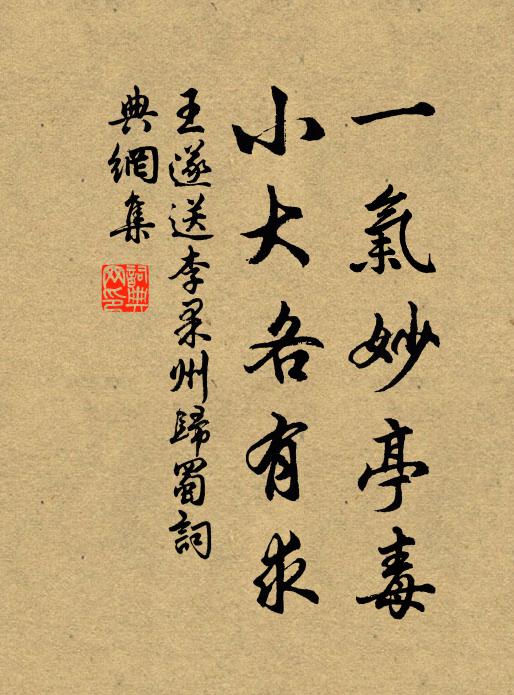 一氣妙亭毒
小大各有求
王遂送李果州歸蜀詞
典網集
詞典
网印